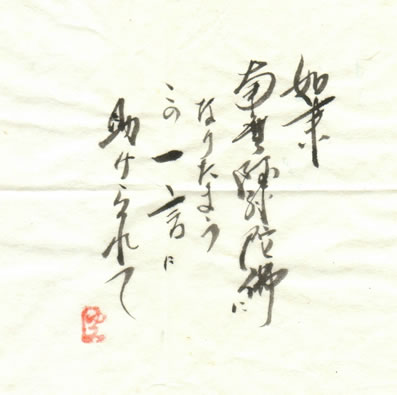 如来
南無阿弥陀佛に
なりたまう
この一言に
助けられて